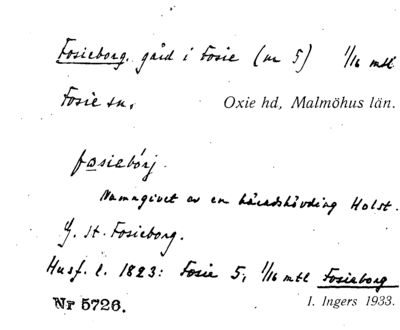 Fosieborg. gård i Fosie (nr 5) 1/16 mtl
Fosie sn, Oxie hd, Malmöhus län.
fosiebórj.
Namngivet av en häradshövding Holst.
J. st. Fosieborg.
Husf. l. 1823: Fosie 5, 1/16 mtl Fosieborg
Nr 5726. I. Ingers 1933.